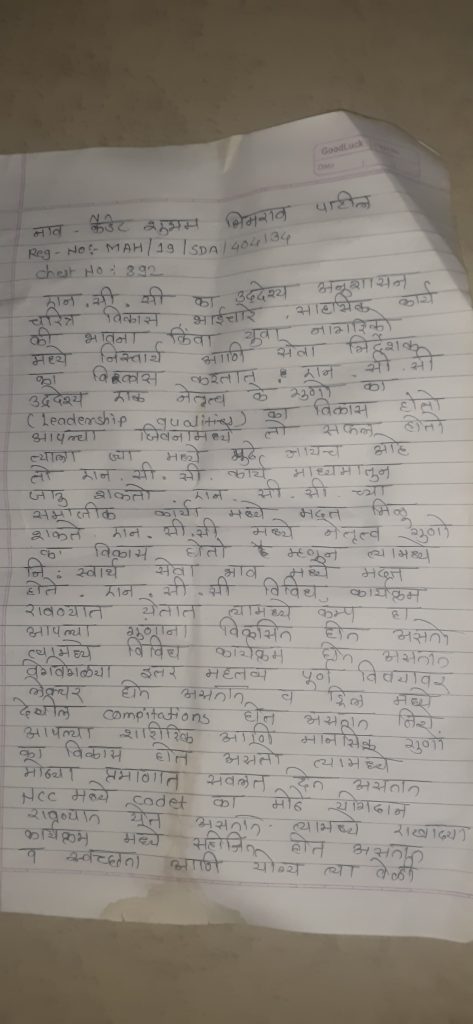 GoodLuck
नाव - कॅडेट शुभम भिमराव पाटील
Reg-No:- MAH/19/SDA/404134
Chest No : 892
एन.सी.सी का उद्देश्य अनुशासन
चरित्र विकास भाईचारे साहसिक कार्य
की भावना किंवा युवा नागरिको
मध्ये निस्वार्थ आणि सेवा निर्देशक
का विकास करतात. एन.सी.सी
उद्देश्य एक नेतृत्व के गुणो का
(leadership qualities) का विकास होतो
आपल्या जिवनामध्ये तो सफल होतो
त्याला ज्या मध्ये पुढे जायच आहे
तो एन.सी.सी. कार्य माध्यमातुन
जाऊ शकतो. एन.सी.सी.च्या
समाजीक कार्या मध्ये मदत मिळु
शकते. एन.सी.सी मध्ये नेतृत्व गुणो
का विकास होतो म्हणून त्यामध्ये
नि:स्वार्थ सेवा भाव मध्ये मदत
होते. एन.सी.सी विविध कार्यक्रम
राबण्यात येतात त्यामध्ये कॅम्प हा
आपल्या गुणाना विकसित होत असतो
त्यामध्ये विविध कार्यक्रम होत असतात
वेगवेगळ्या इतर महत्व पूर्ण विषयावर
लेक्चर होत असतात व ड्रिल मध्ये
देखील compitations होत असतात तिथे
आपल्या शारीरिक आणि मानसिक गुणो
का विकास होत असतो त्यामध्ये
मोठ्या प्रमाणात सवलत देत असतात
NCC मध्ये codet का मोठे योगदान
राबण्यात येत असतात. त्यामध्ये
कार्यक्रम मध्ये सहभागित होत असतात
व स्वच्छता आणि योग्य त्या वेळी